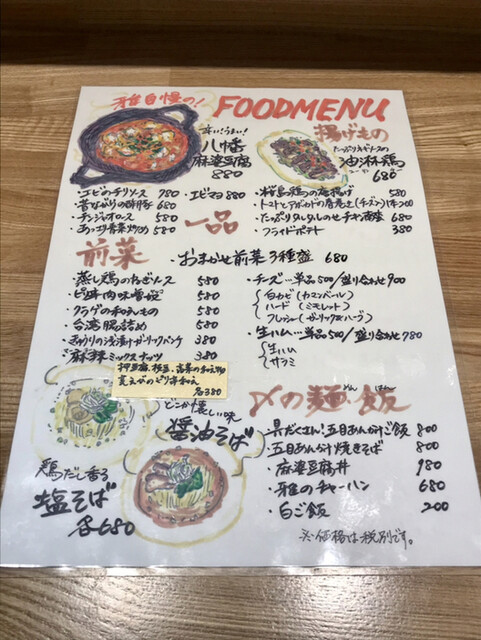 雅自慢の!
FOODMENU
辛い!うまい!
八幡
麻婆豆腐
880
揚げもの
たっぷりネギソースの
油淋鶏
ユーリンチー 680
・エビのチリソース 780
・エビマヨ 880
・昔ながりの酢豚 680
・チンジャオロース 580
・あっさり青菜炒め 580
一品
・桜島鶏の唐揚げ 580
・トマトとアボガドの春巻き(チーズ入)1本200
・たっぷりタルタルのせチキン南蛮 680
・フライドポテト 380
前菜
・おまかせ前菜3種盛 680
・蒸し鶏のねぎソース 580
・ピリ辛肉味噌 580
・クラゲの和えもの 580
・台湾腸詰め 580
・きゅうりの浅漬けガーリックパンチ 380
・麻辣ミックスナッツ 380
・チーズ…単品500/盛り合わせ900
白カビ(カマンベール)
ハード(ミモレット)
フレッシュ(ガーリック&ハーブ)
・生ハム…単品500/盛り合わせ780
生ハム
サラミ
押豆腐、枝豆、高菜の和えもの
枝まめのピリ辛和え
各380
どこか懐しい味
醤油そば
鶏だし香る
塩そば
各680
〆の麺・飯
めん はん
・具だくさん!五目あんかけご飯 800
・五目あんかけ焼きそば 800
・麻婆豆腐丼 980
・雅のチャーハン 680
・白ご飯 200
※価格は税別です。